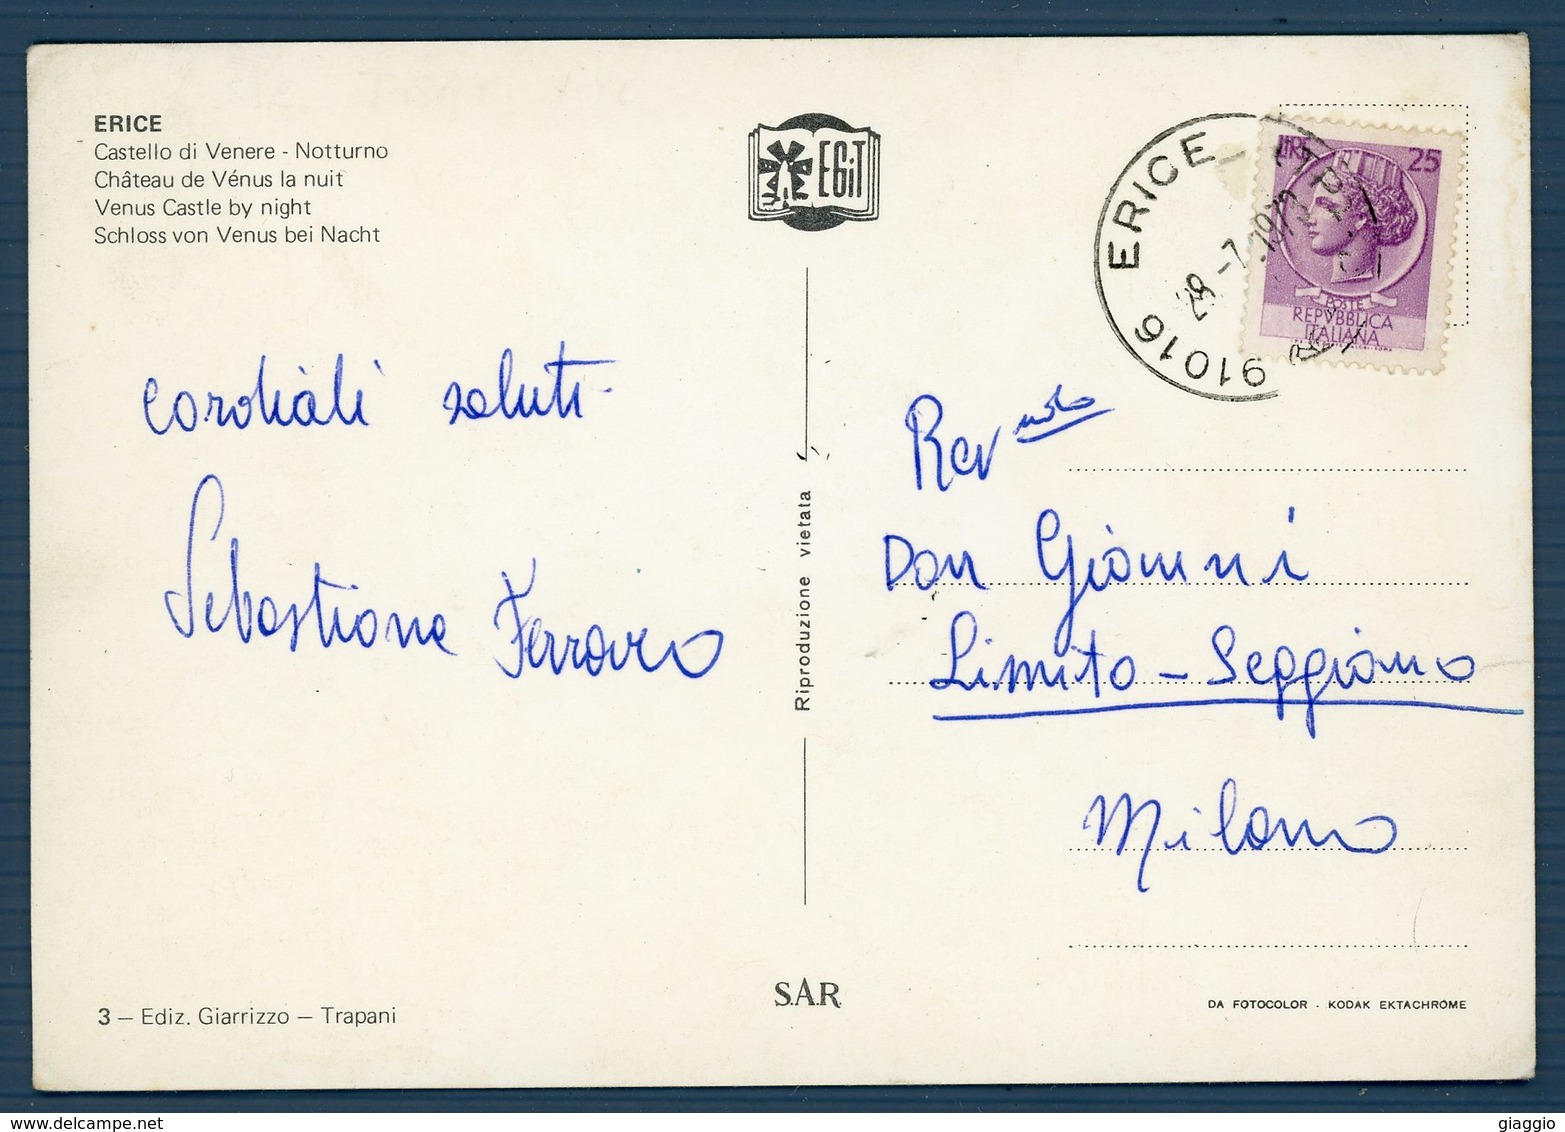 ERICE
Castello di Venere - Notturno
Château de Vénus la nuit
Venus Castle by night
Schloss von Venus bei Nacht
EGiT
91016 ERICE (TP)
28-7.197
LIRE 25
POSTE
REPVBBLICA
ITALIANA
cordiali saluti
Sebastiano Ferraro
Riproduzione vietata
Rev mo
Don Gianni
Limito - Seggiano
Milano
S.A.R.
3 — Ediz. Giarrizzo — Trapani
DA FOTOCOLOR - KODAK EKTACHROME
giaggio